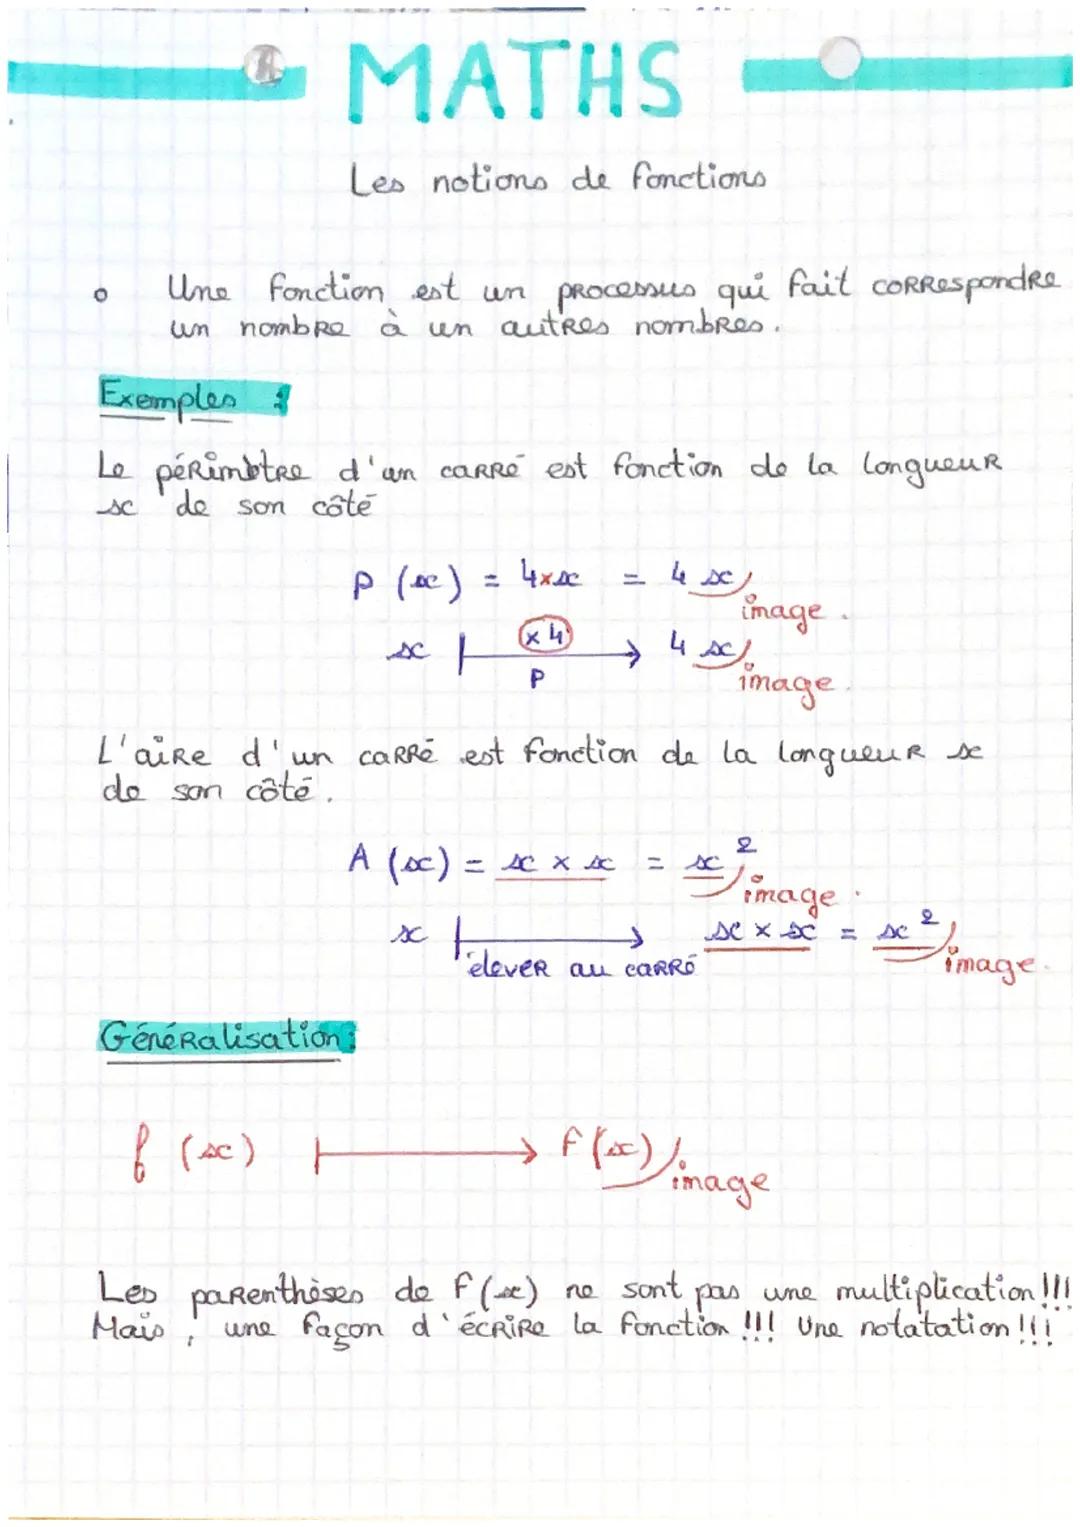 MATHS
Les notions de fonctions
Une fonction est un processus qui fait correspondre
un nombre à un autres nombres.
Exemples :
Le périmètre d'un carré est fonction de la longueur
x de son côté
P (x) = 4×x = 4x image.
x ×4 4x image.
P
L'aire d'un carré est fonction de la longueur x
de son côté.
A (x) = x × x = x² image.
x x × x = x² image.
élever au carré
Généralisation :
f (x) f(x) image
Les parenthèses de f(x) ne sont pas une multiplication !!!
Mais, une façon d'écrire la fonction !!! Une notatation !!!